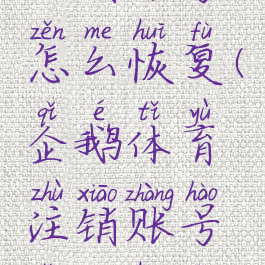 zěn me huī fù
怎么恢复(
qǐ é tǐ yù
企鹅体育
zhù xiāo zhàng hào
注销账号